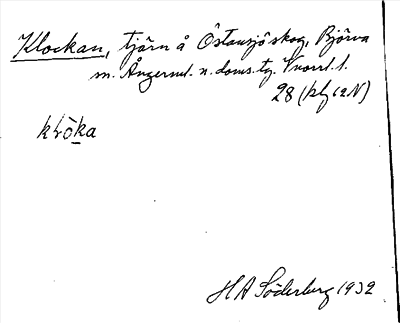 Klockan, tjärn å Östansjö skog, Björna
m. Ångerml. n. doms. tg. Vnorrl. l.
28 (kf 12 N)
klòka
HA Söderberg 1932